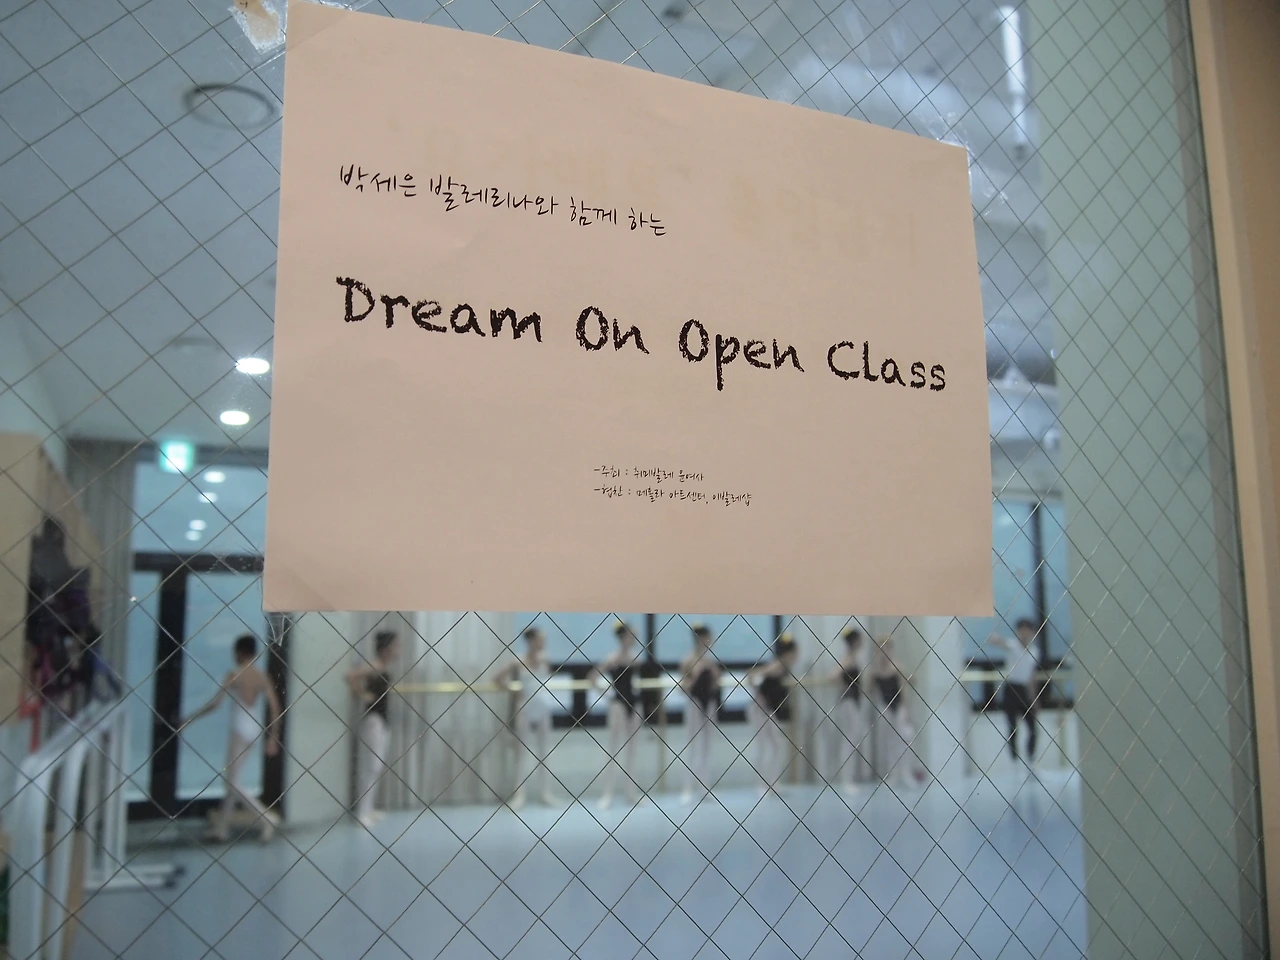 박세은 발레리나와 함께 하는
Dream On Open Class
-주최 : 취미발레 윤여사
-협찬 : 메롤라 아트센터, 이발레샵